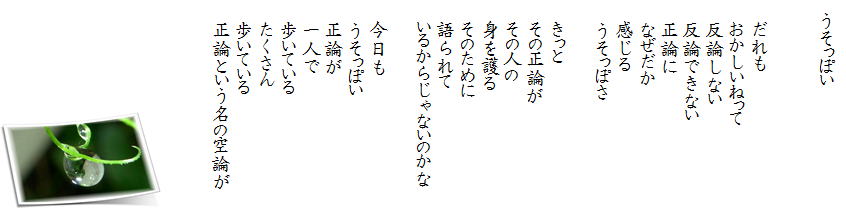 うそっぽい
だれも
おかしいねって
反論しない
反論できない
正論に
なぜだか
感じる
うそっぽさ
きっと
その正論が
その人の
身を護る
そのために
語られて
いるからじゃないのかな
今日も
うそっぽい
正論が
一人で
歩いている
たくさん
歩いている
正論という名の空論が